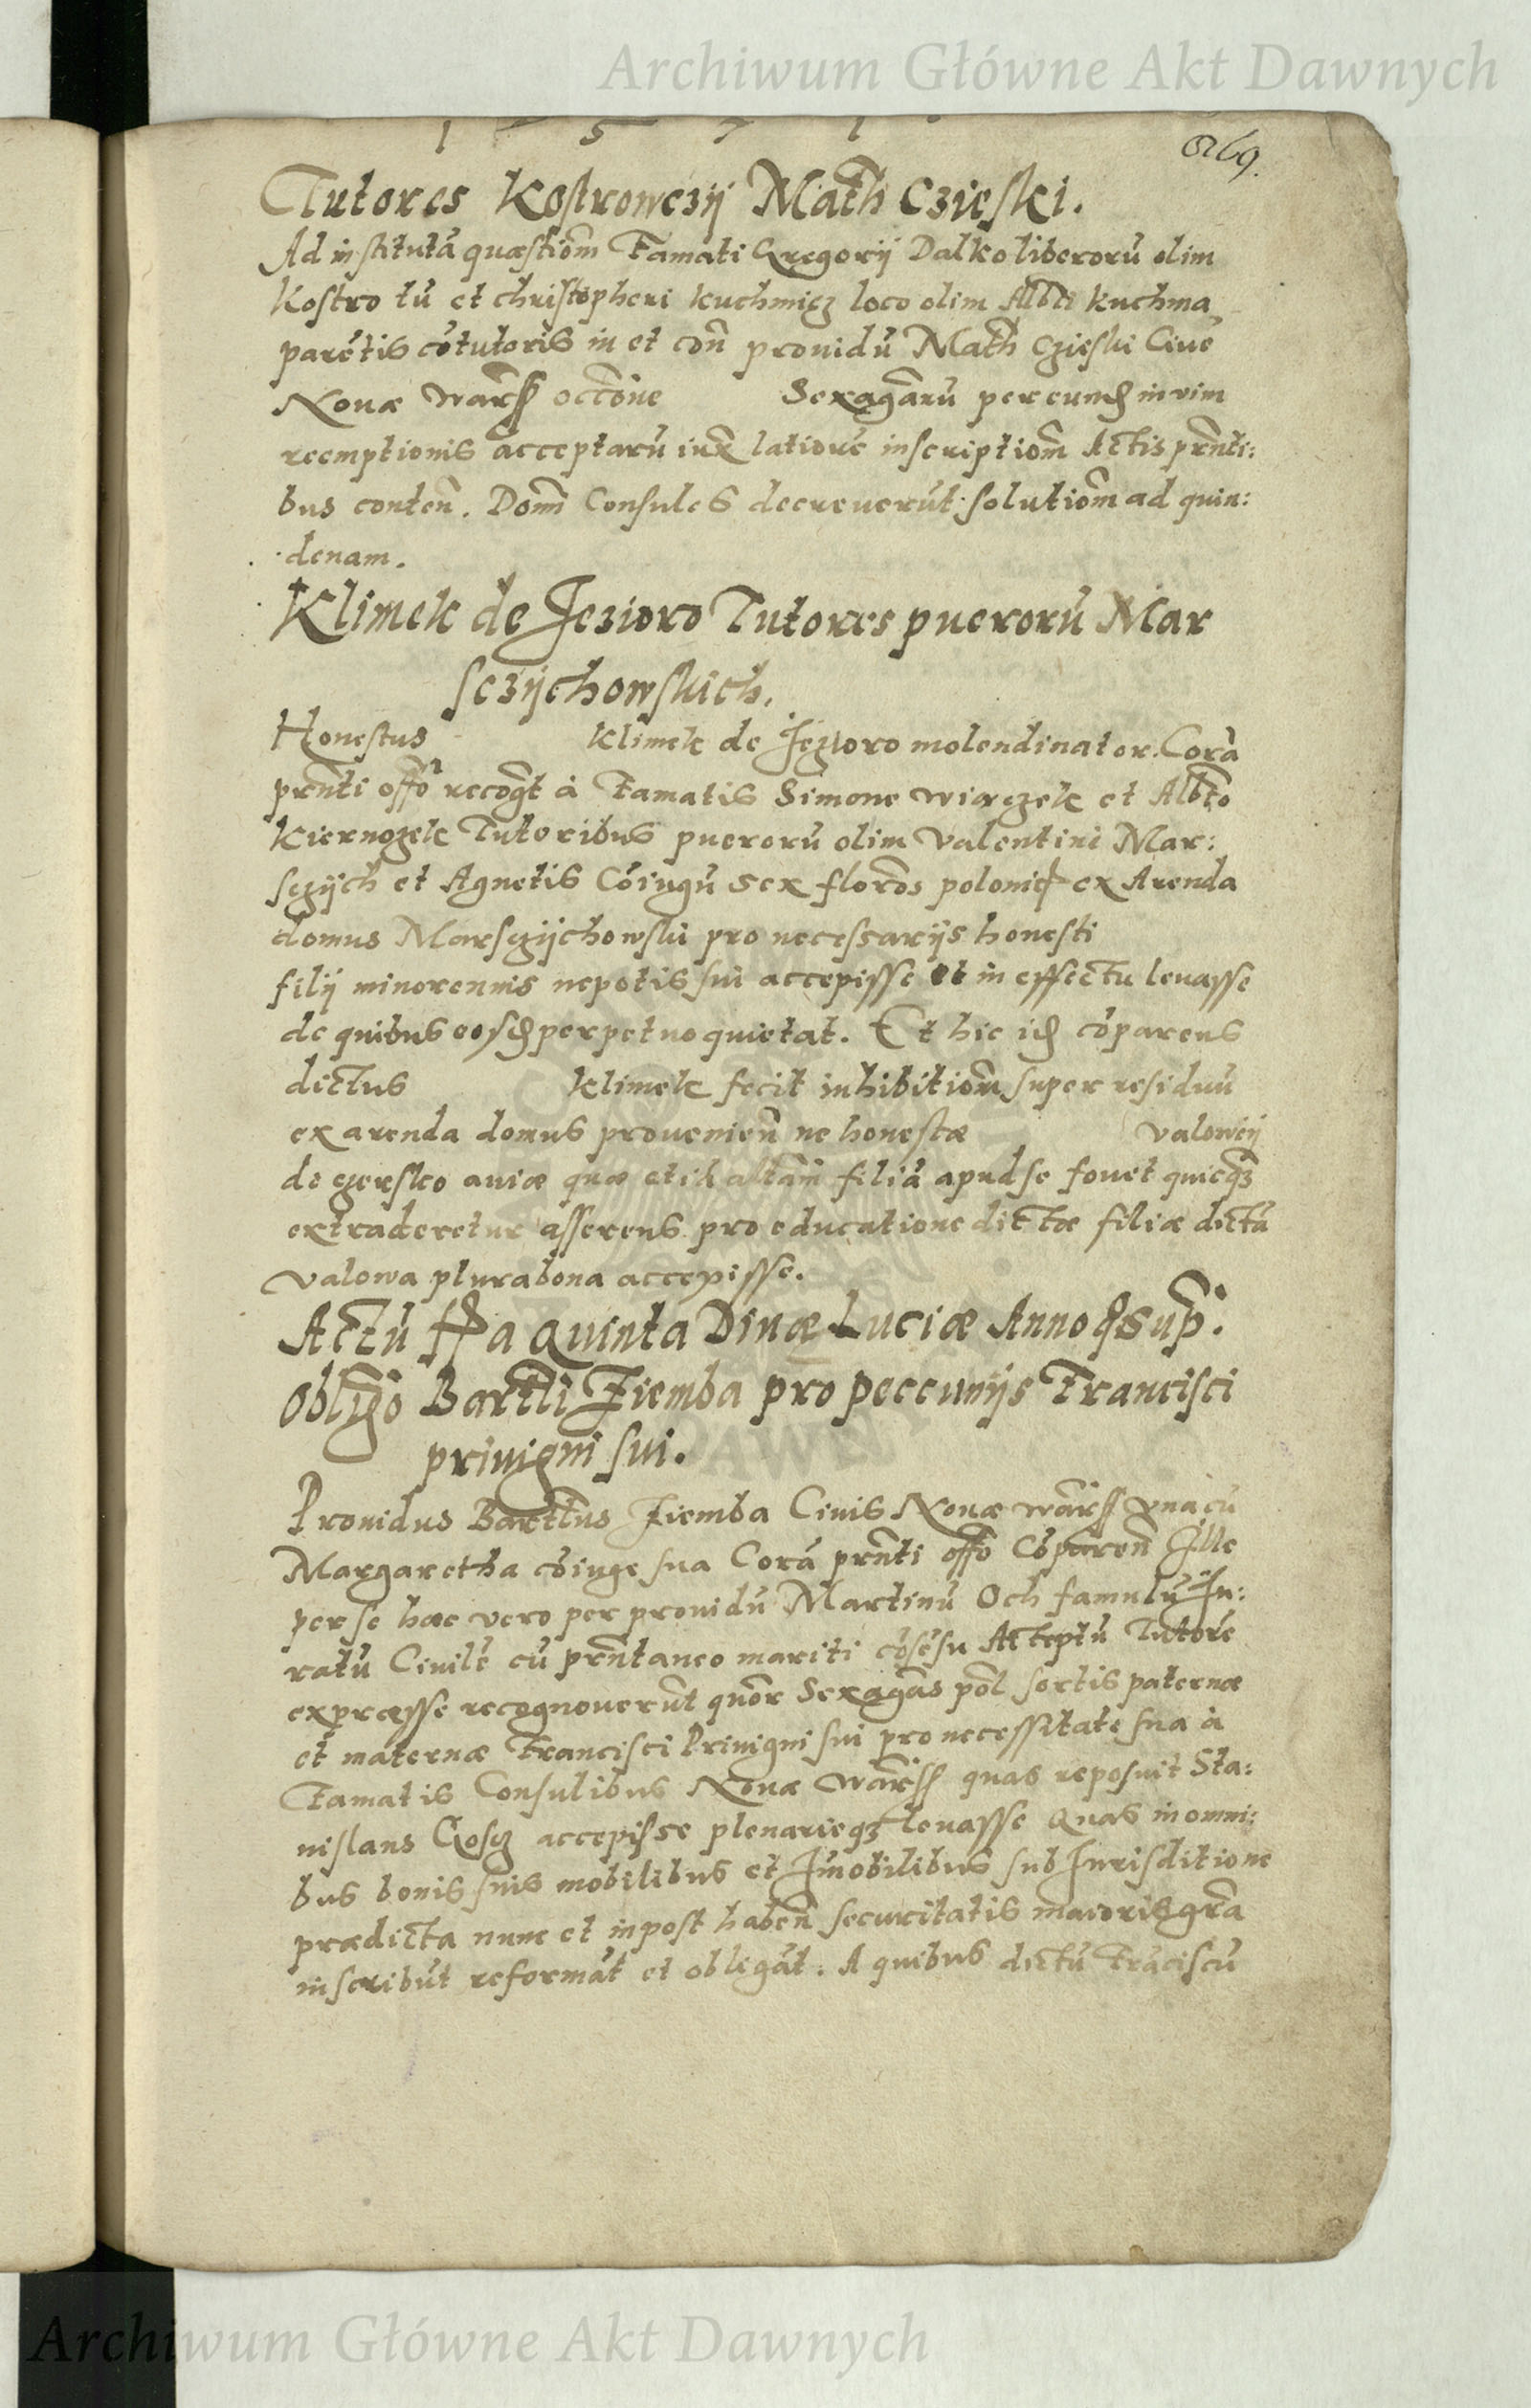 Archiwum Główne Akt Dawnych
1 5 7 1
269.
Tutores Kostrowczij Math Czieski.
Ad institutã quæstiom̃ Famati Gregorij Dalko liberorũ olim
Kostro tũ et christopheri kuchmicz loco olim Albti kuchma
parẽtis cõtutoris in et coñ prouidũ Math Czieski Ciuẽ
Nouæ Warß occõne Sexagãrũ per eund in vim
reemptionis acceptarũ iux latiorẽ inscriptiom̃ Actis prñti:
bus conteñ. Domĩ Consules decreuerũt solutiom̃ ad quin:
denam.
Klimek de Jezioro Tutores puerorũ Mar
sczijchowskich.
Honestus Klimek de Jezioro molendinator. Corã
prñti offõ recogt à Famatis Simone wiaczek et Albto
Kiernozek Tutoribus puerorũ olim Valentini Mar:
sczijch et Agnetis Cõiugũ sex florõs polonic ex Arenda
domus Marsczijchowski pro necessarijs honesti
filij minorennis nepotis sui accepisse et in effectu leuasse
de quibus eosd perpetuo quietat. Et hic id cõparens
dictus Klimek fecit inhibitiom̃ super residuũ
ex arenda domus prouenieñ ne honestæ Valowij
de czersko auiæ quæ etiã altam filiã apud se fouet quicqz
extraderetur asserens pro educatione dictæ filiæ dictã
Valowa plura bona accepisse.
Actũ fferia quinta Diuæ Luciæ Anno q̃ sup̃.
Obligõ Bartli Ziemba pro peccunijs Francisci
priuigni sui.
Prouidus Bartlus Ziemba Ciuis Nouæ warß vnacũ
Margaretha cõiuge sua Corã prñti offõ Cõpareñ Ille
per se hæc vero per prouidũ Martinũ Och famulũ Iu:
ratũ Ciuilẽ cũ prñtaneo mariti cõsẽsu Acceptũ Tutorẽ
expræsse recognouerũt quõr Sexagãs põl sortis paternæ
et maternæ Francisci Priuigni sui pro necessitate sua à
Famatis Consulibus Nouæ warß quas reposuit Sta:
nislaus Gosz accepisse plenarieqz leuasse Quas in omni:
bus bonis suis mobilibus et Im̃obilibus sub Iurisditione
prædicta nunc et inpost habeñ securitatis maioris grã
inscribũt reformãt et obligãt. A quibus dictũ Frãciscũ
Archiwum Główne Akt Dawnych